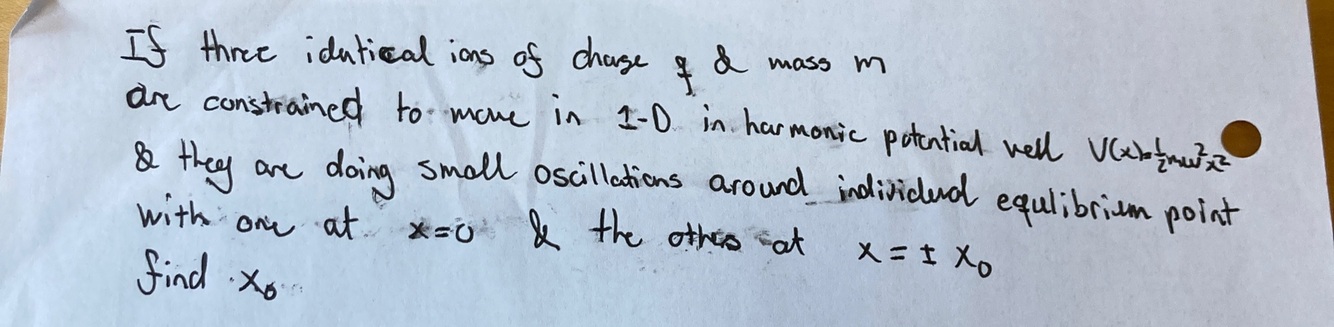 If three idntical ions of charge q & mass m
are constrained to move in 1-D in harmonic potential well V(x)=½mω²x²
& they are doing small oscillations around individual equlibrium point
with one at x=0 & the others at x = ± x₀
find x₀